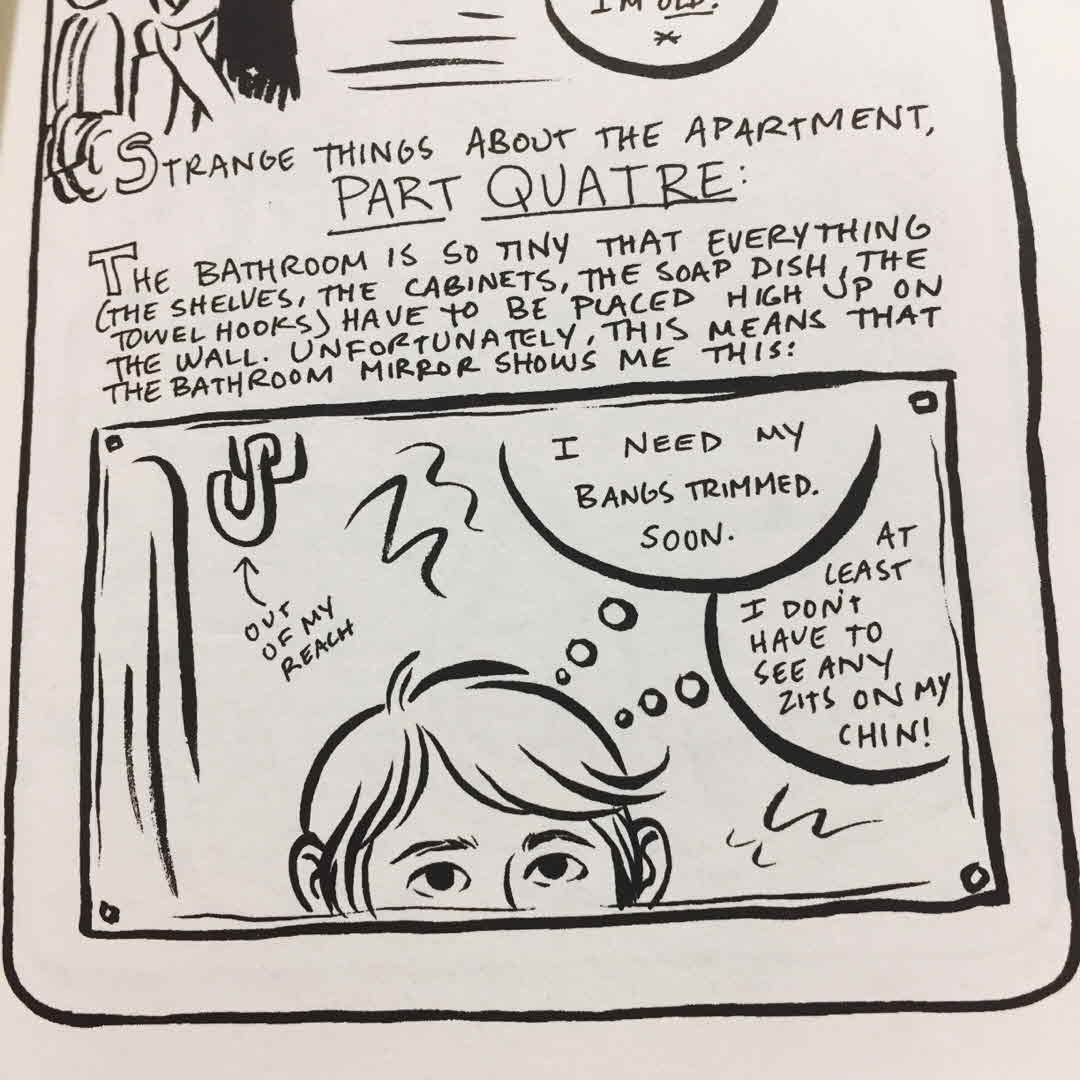 I'M OLD!
*
STRANGE THINGS ABOUT THE APARTMENT,
PART QUATRE:
THE BATHROOM IS SO TINY THAT EVERYTHING
(THE SHELVES, THE CABINETS, THE SOAP DISH, THE
TOWEL HOOKS) HAVE TO BE PLACED HIGH UP ON
THE WALL. UNFORTUNATELY, THIS MEANS THAT
THE BATHROOM MIRROR SHOWS ME THIS:
I NEED MY
BANGS TRIMMED.
SOON.
AT
LEAST
I DON'T
HAVE TO
SEE ANY
ZITS ON MY
CHIN!
OUT
OF MY
REACH